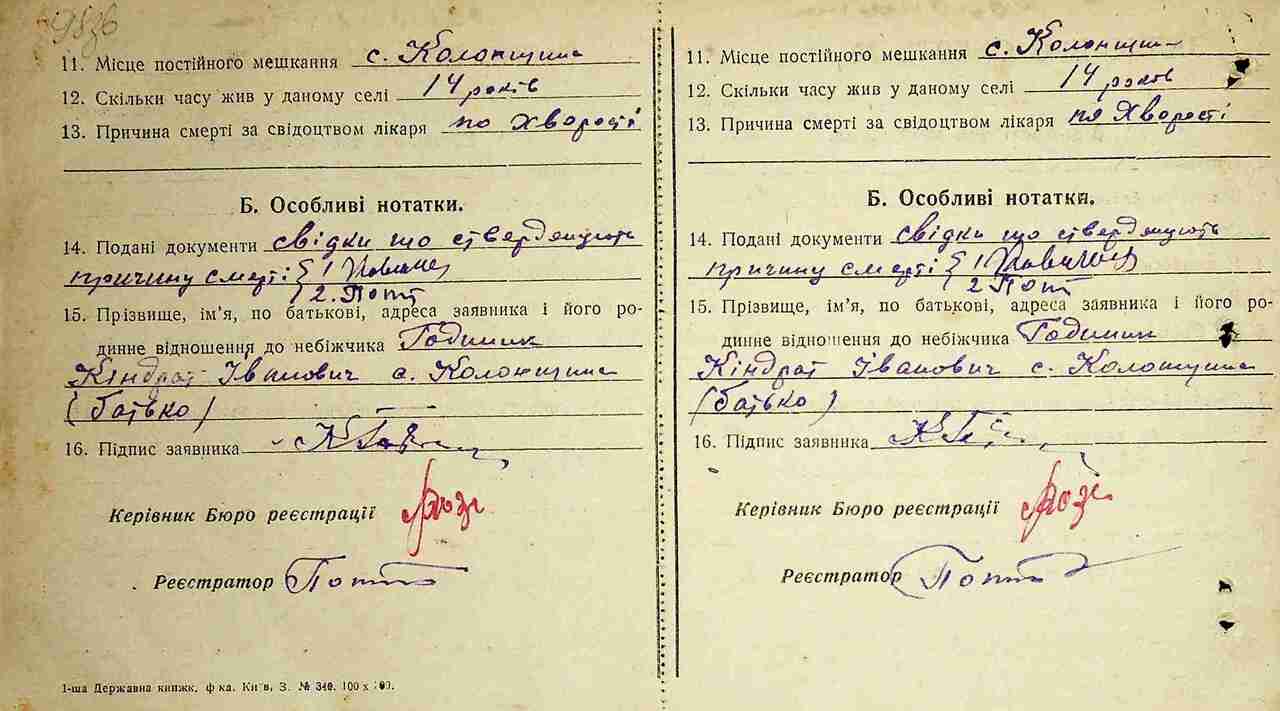 9836
11. Місце постійного мешкання с. Колонщина
12. Скільки часу жив у даному селі 14 років
13. Причина смерті за свідоцтвом лікаря по хворості
Б. Особливі нотатки.
14. Подані документи свідки що ствердждують
причину смерті { 1
2. Потт
15. Прізвище, ім'я, по батькові, адреса заявника і його ро-
динне відношення до небіжчика Годинник
Кіндрат Іванович с. Колонщина
(батько)
16. Підпис заявника
Керівник Бюро реєстрації
Реєстратор
1-ша Державна книжк. ф-ка. Київ, З. № 340. 100 х 100.
11. Місце постійного мешкання с. Колонщина
12. Скільки часу жив у даному селі 14 років
13. Причина смерті за свідоцтвом лікаря по хворості
Б. Особливі нотатки.
14. Подані документи свідки що ствердждують
причину смерті { 1
2
15. Прізвище, ім'я, по батькові, адреса заявника і його ро-
динне відношення до небіжчика Годинник
Кіндрат Іванович с. Колонщина
(батько)
16. Підпис заявника
Керівник Бюро реєстрації
Реєстратор